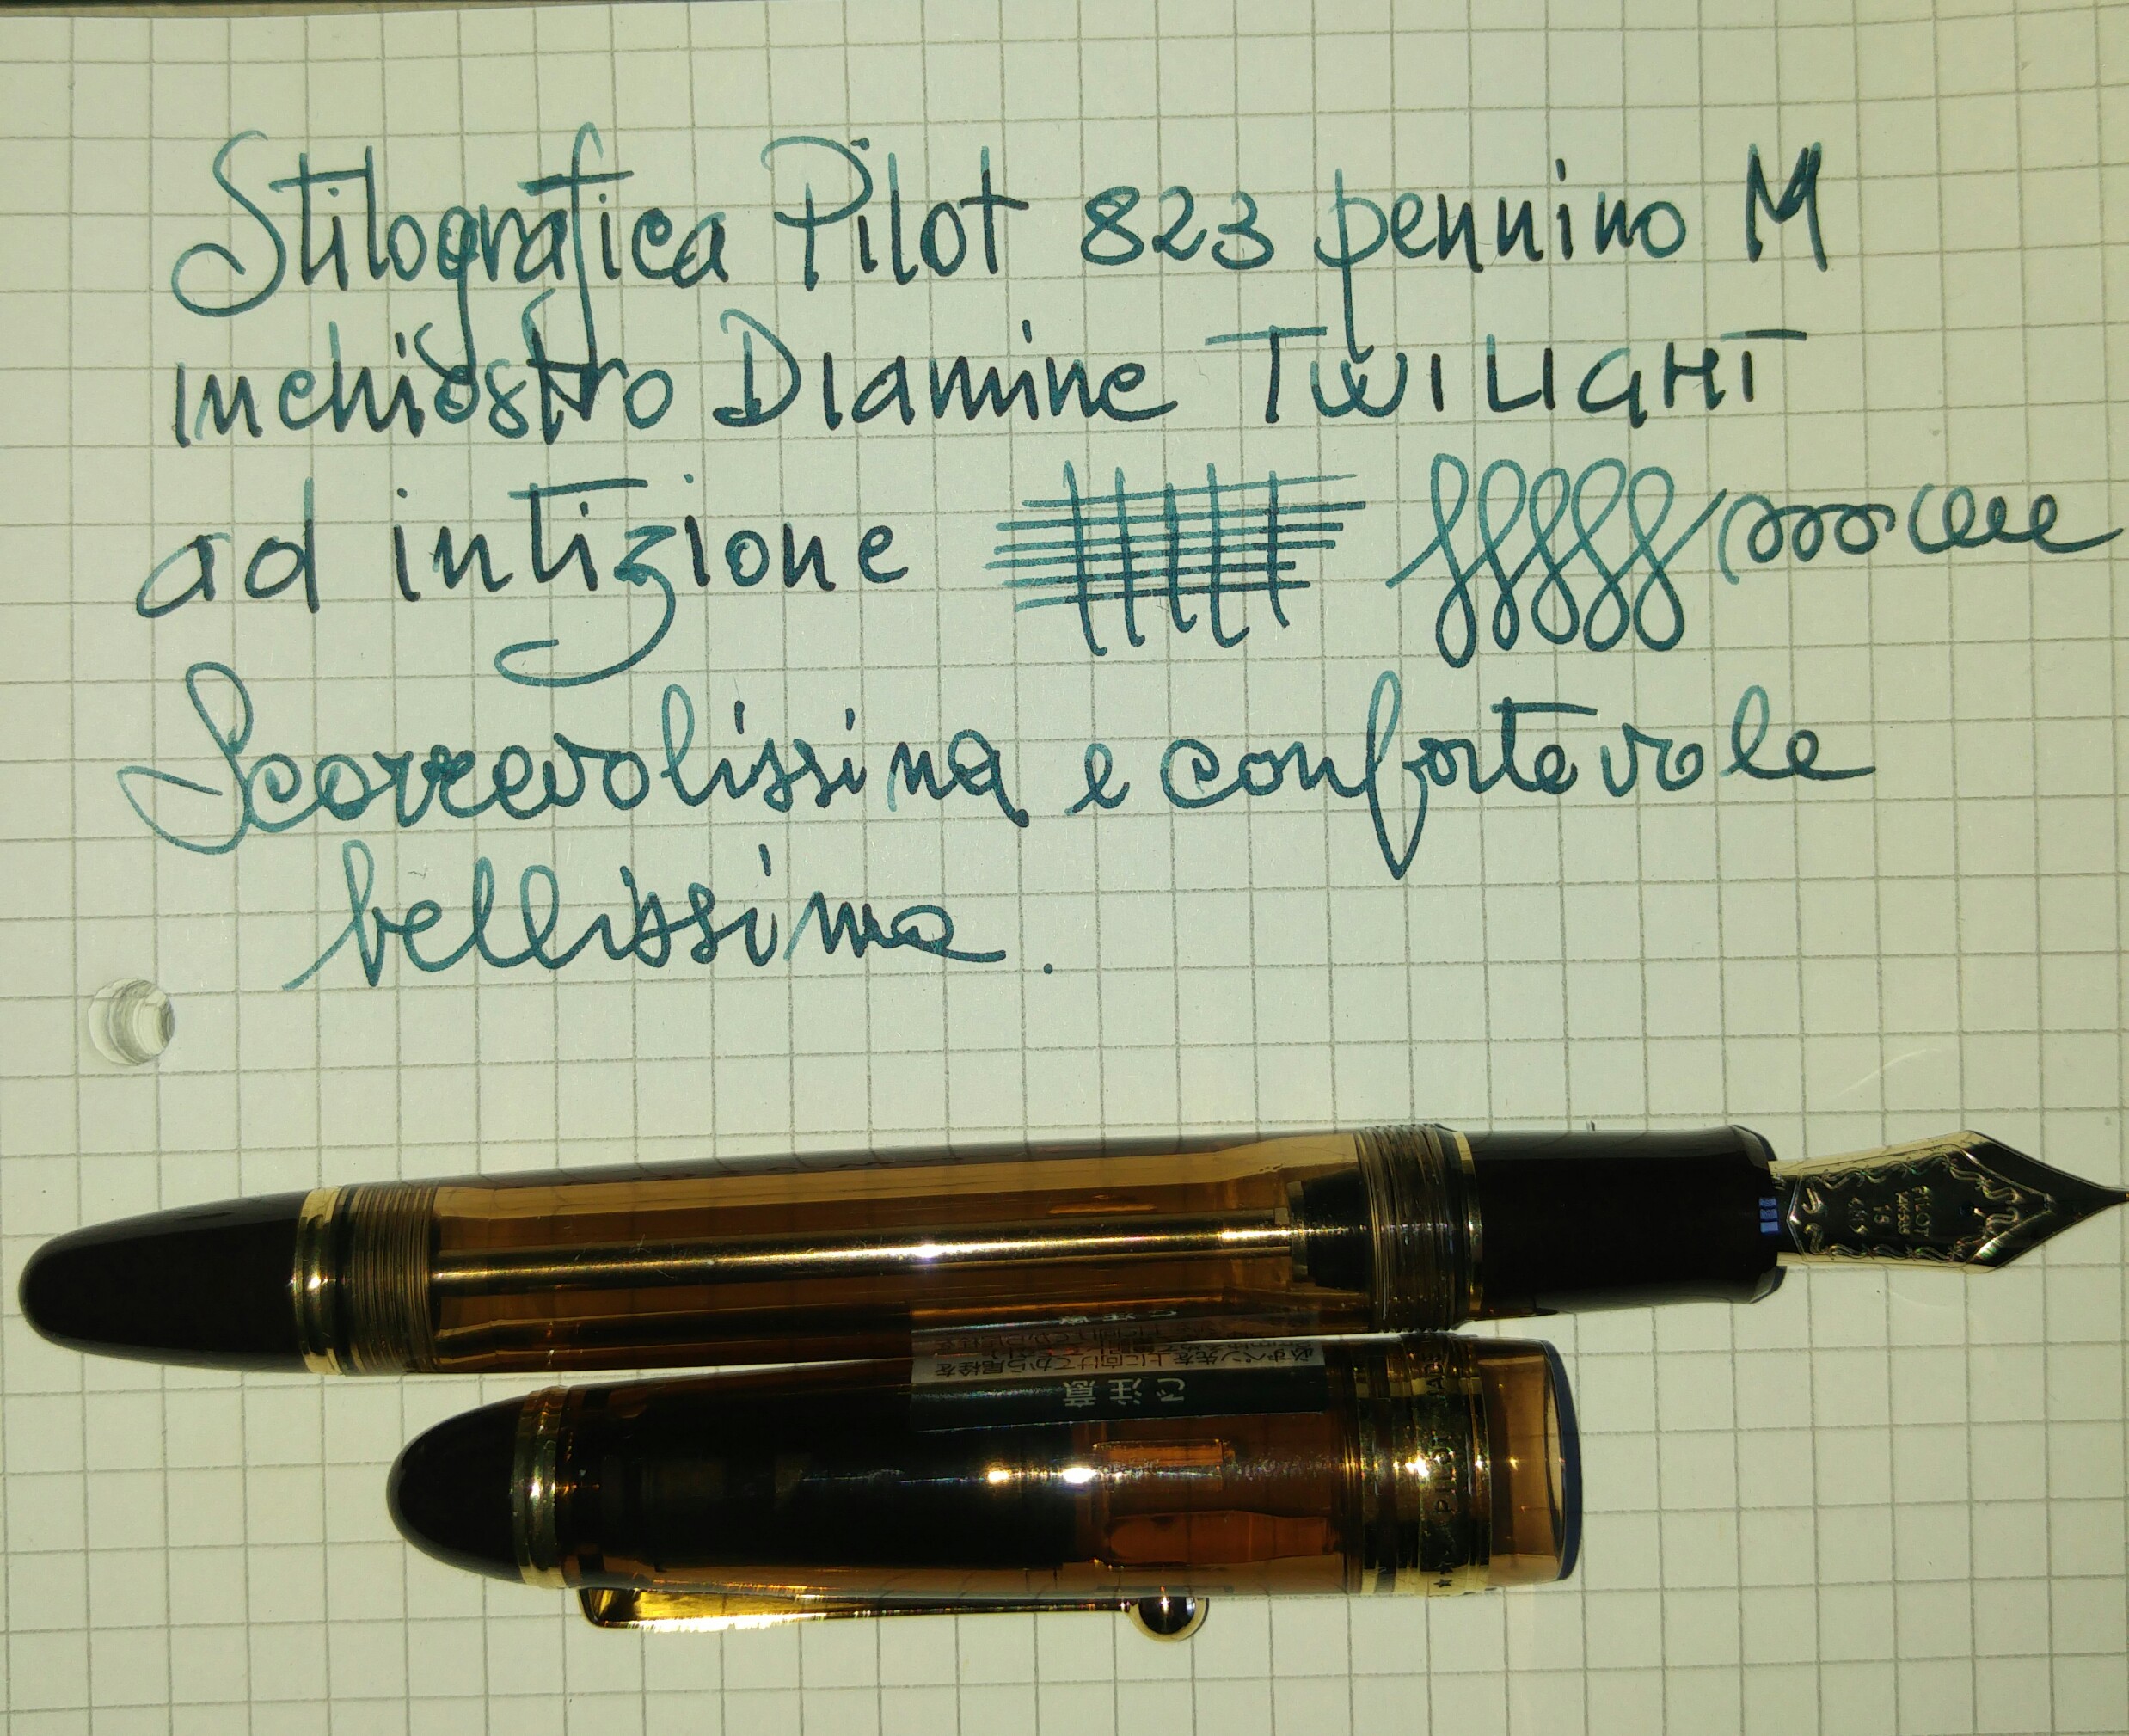 Stilografica Pilot 823 pennino M
inchiostro Diamine TWILIGHT
ad intizione
Scorrevolissima e confortevole
bellissima.
PILOT
15
ご注意
必ずペン先を上に向けてから尾栓を
★★★ PILOT MADE